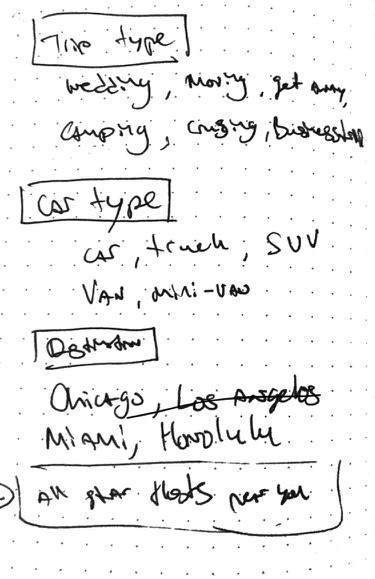 Trip type
wedding, moving, get away,
Camping, cruising, Business trip
Car type
car, truck, SUV
VAN, mini-van
Destination
Chicago, Los Angelos
Miami, Honolulu
All star Hosts near you